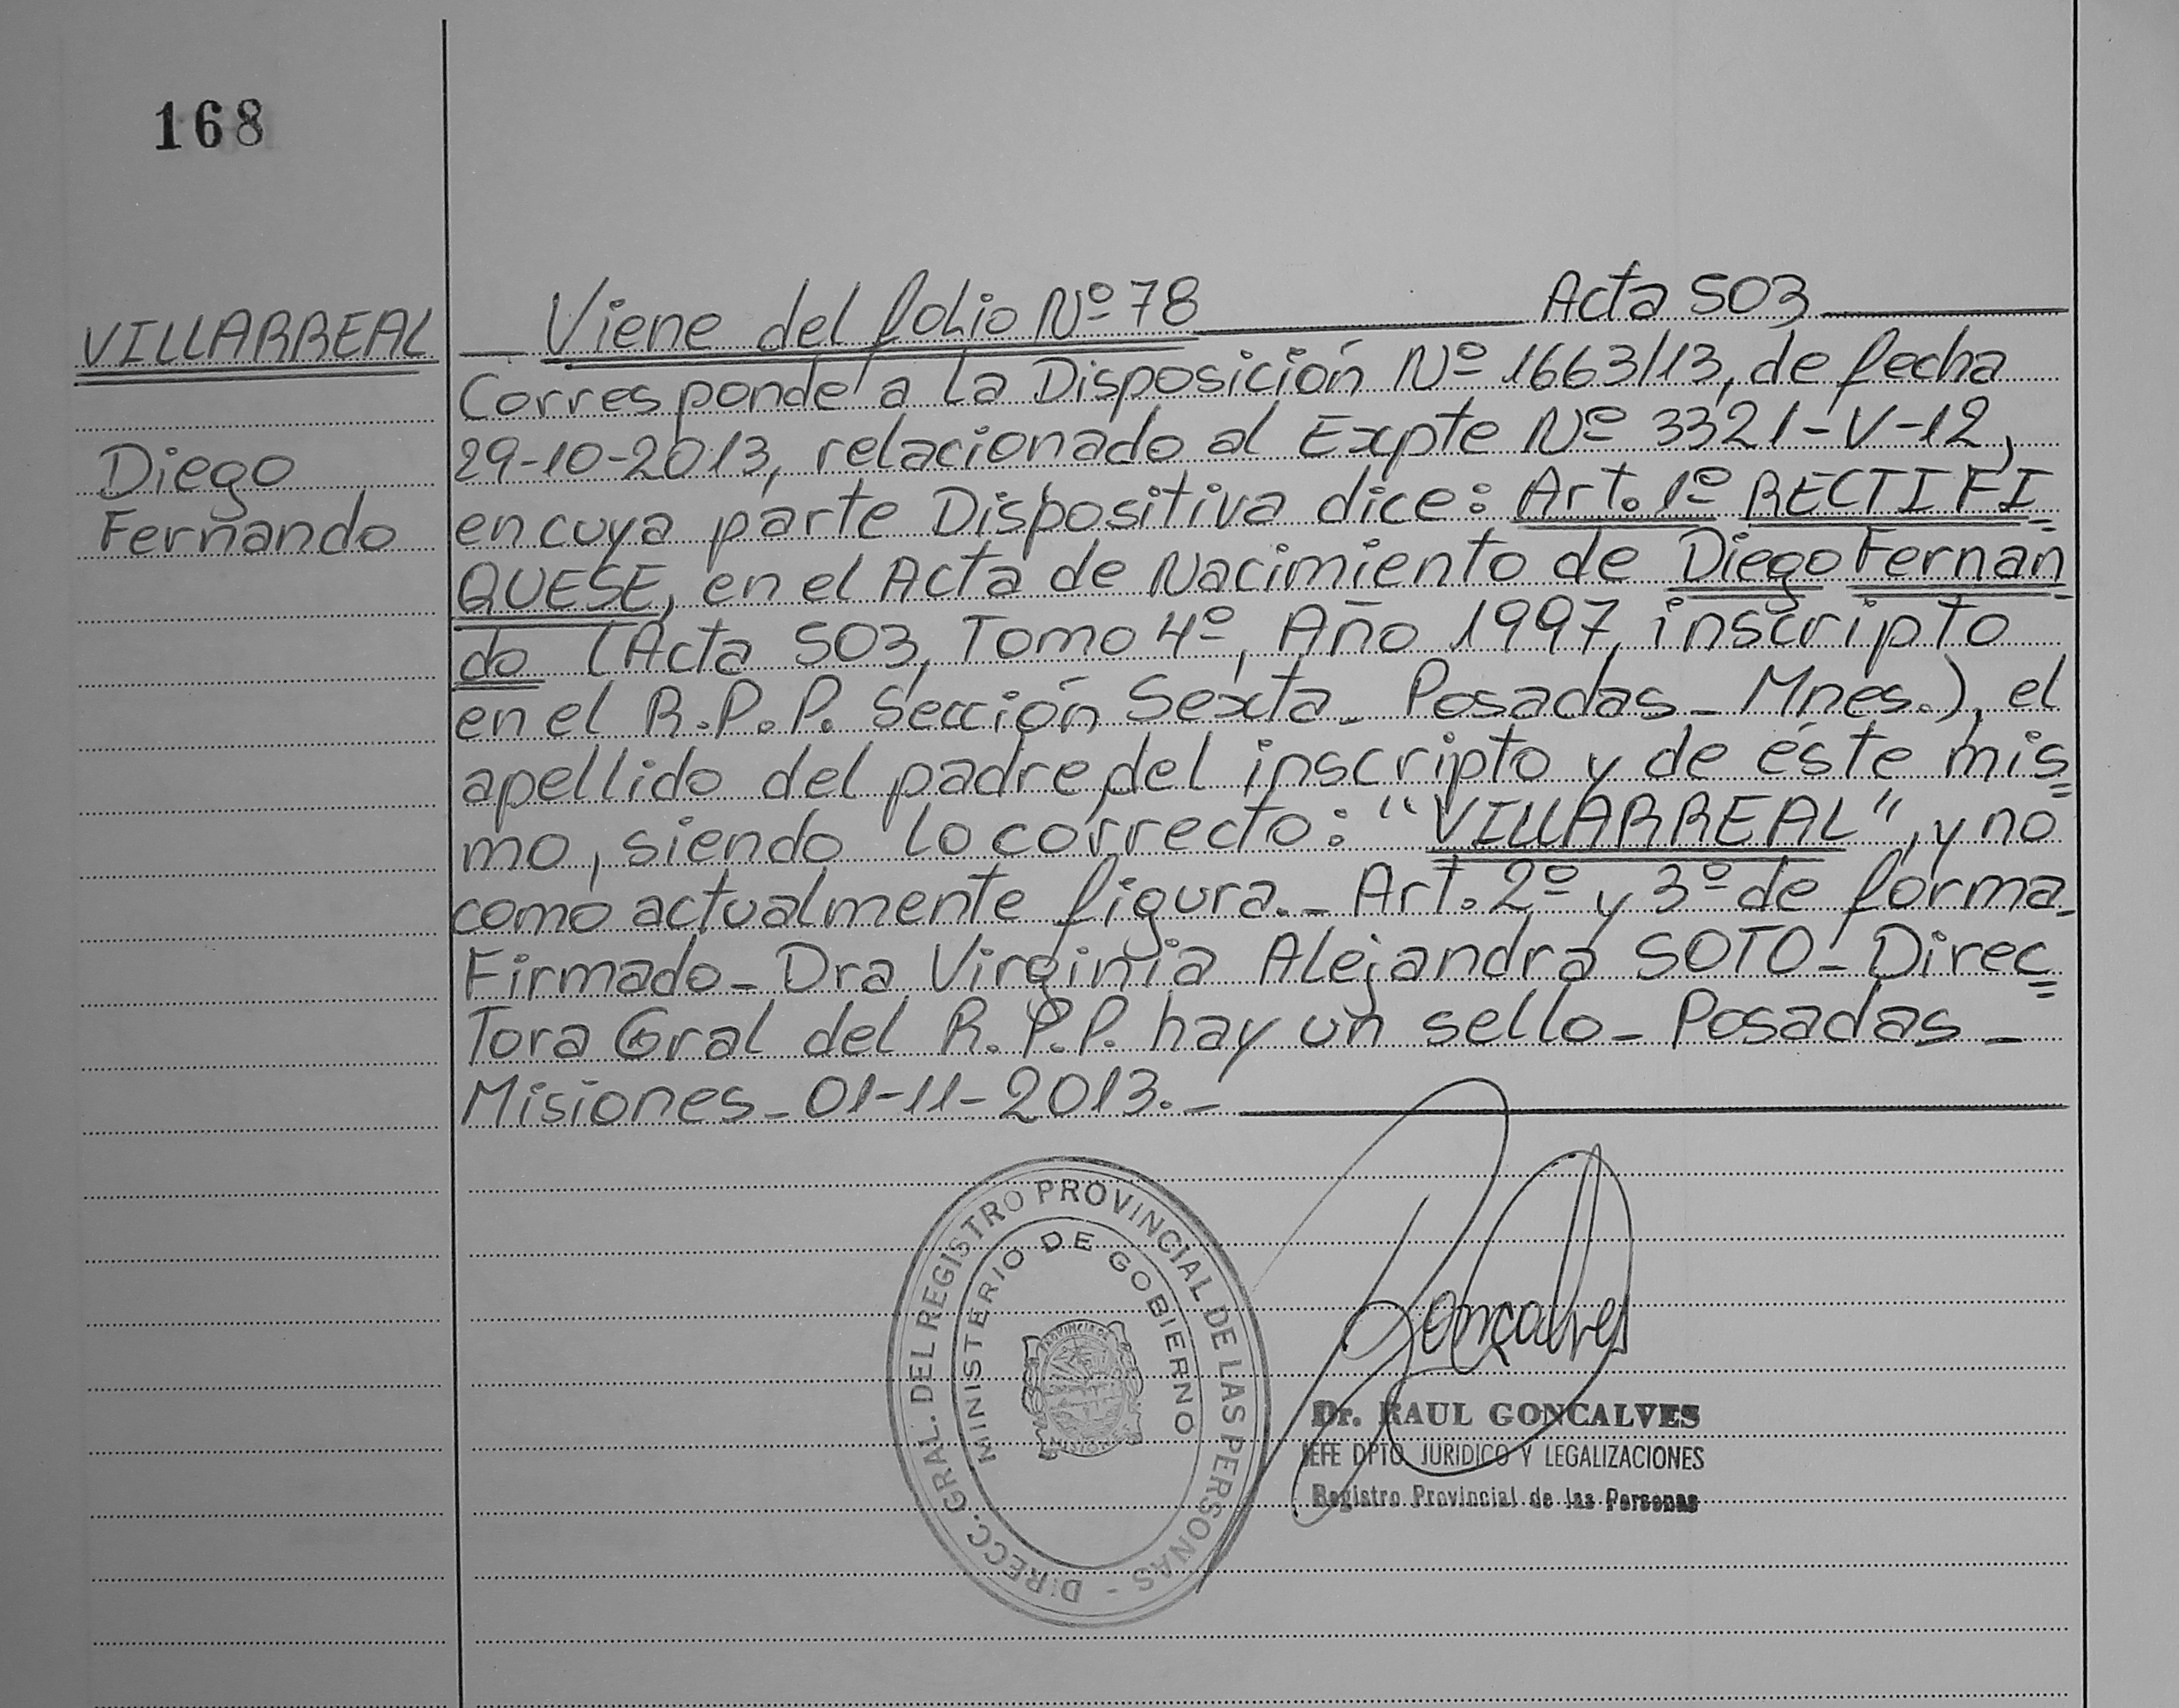 168
VILLARREAL
Diego
Fernando
Viene del folio Nº 78 Acta 503
Corresponde a la Disposición Nº 1663/13, de fecha
29-10-2013, relacionado al Expte Nº 3321-V-12,
en cuya parte Dispositiva dice: Art. 1º RECTIFI
QUESE, en el Acta de Nacimiento de Diego Fernan
do (Acta 503, Tomo 4º, Año 1997, inscripto
en el R.P.P. Sección Sexta_ Posadas_ Mnes.), el
apellido del padre, del inscripto y de éste mis
mo, siendo lo correcto: "VILLARREAL", y no
como actualmente figura._ Art. 2º y 3º de forma_
Firmado_ Dra Virginia Alejandra SOTO_ Direc
Tora Gral del R.P.P. hay un sello_ Posadas_
Misiones_ 01-11-2013._
DIRECC. GRAL. DEL REGISTRO PROVINCIAL DE LAS PERSONAS -
MINISTERIO DE GOBIERNO
PROVINCIA DE
MISIONES
Goncalves
Dr. RAUL GONCALVES
JEFE DPTO. JURIDICO Y LEGALIZACIONES
Registro Provincial de las Personas